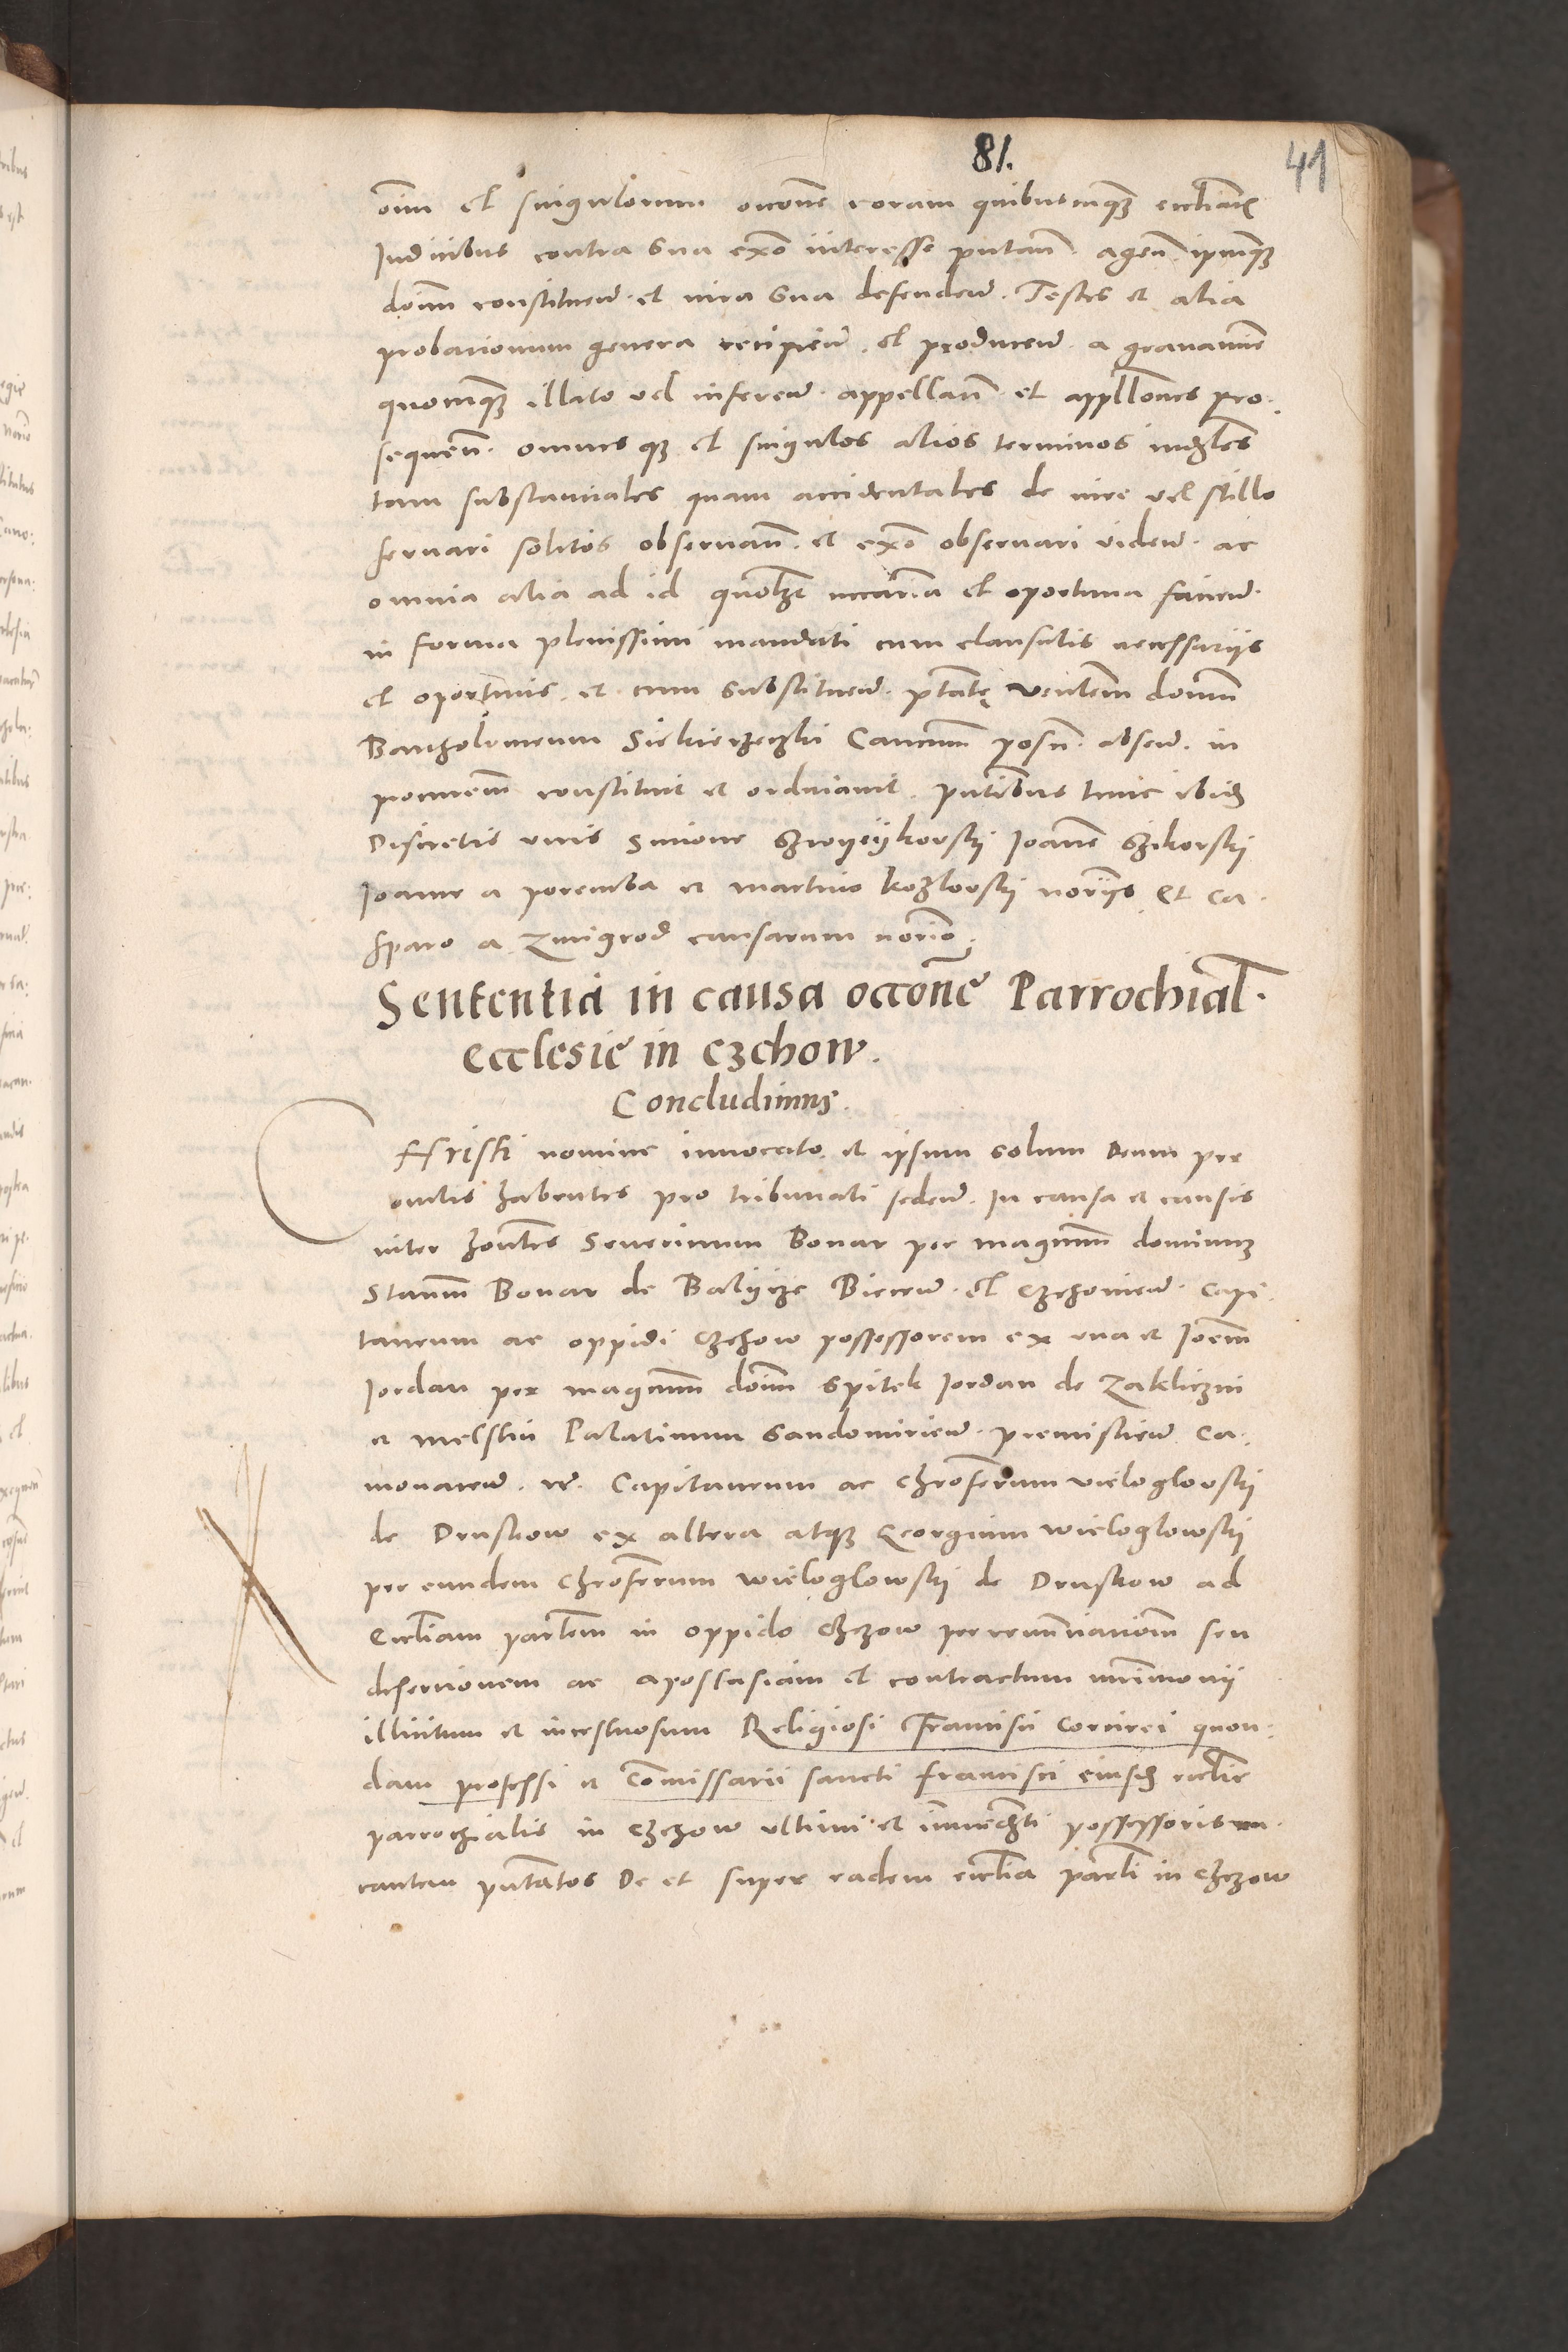 81.
41
oim et singulorum occone coram quibuscumq ecclias
Iudicibus contra sua exo interesse putan. agen ipmq
doim constituen. et iura sua defenden. Testes et alia
probacionum genera recipien. et producen. a gravamine
quocumq illato vel inferen. appellan. et appllones pro.
sequen. omnes q et singulos alios terminos iudles
tam substantiales quam accidentales de iure vel stillo
servari solitos observan. et exo observari viden. ac
omnia alia ad id quolzt necaria et oportuna facien.
in forma plenissimi mandati cum clausulis necessariis
et oportunis. et cum substituen. ptate venlem domm
Bartholomeum Siekierzeczki Cancum posn. absen. in
procurem constituit et ordinavit. pntibus tunc ibid
Discretis viris Simone Ioanne Szikorski
Ioanne a poremba et martino kozlovskj noriis et ca.
sparo a Zmigrod causarum norio.
Sententia in causa occone Parrochial.
ecclesie in czchow.
Concludimus.
CHristi nomine invocato et ipsum solum Deum pre
oculis habentes pro tribunali seden. In causa et causis
inter hontes Severinum Bonar per magcum dominum
Stanm Bonar de Balyicze Biecen. et czchovien. capi
taneum ac oppidi czchow possessorem ex una et Ioem
Iordan per magcum doim Spitek Iordan de Zakliczin
et melstin Palatinum Sandomirien. premislien. Ca.
monacen. Capitaneum ac chroferum vieloglovskj
de Druskow ex altera atq Georgium wieloglowskj
per eundem chroferum wieloglowskj de Druskow ad
eccliam parlem in oppido Czchow per renunciacionem seu
desercionem ac apostasiam et contractum mrimonij
illicitum et incestuosum Religiosi Francisci Corcirei quon.
dam professi et Commissarii sancti francisci eiusd ecclie
parrochialis in czchow ultimi et immediati possessoris va.
cantem pntatos De et super eadem ecclia parli in Czchow